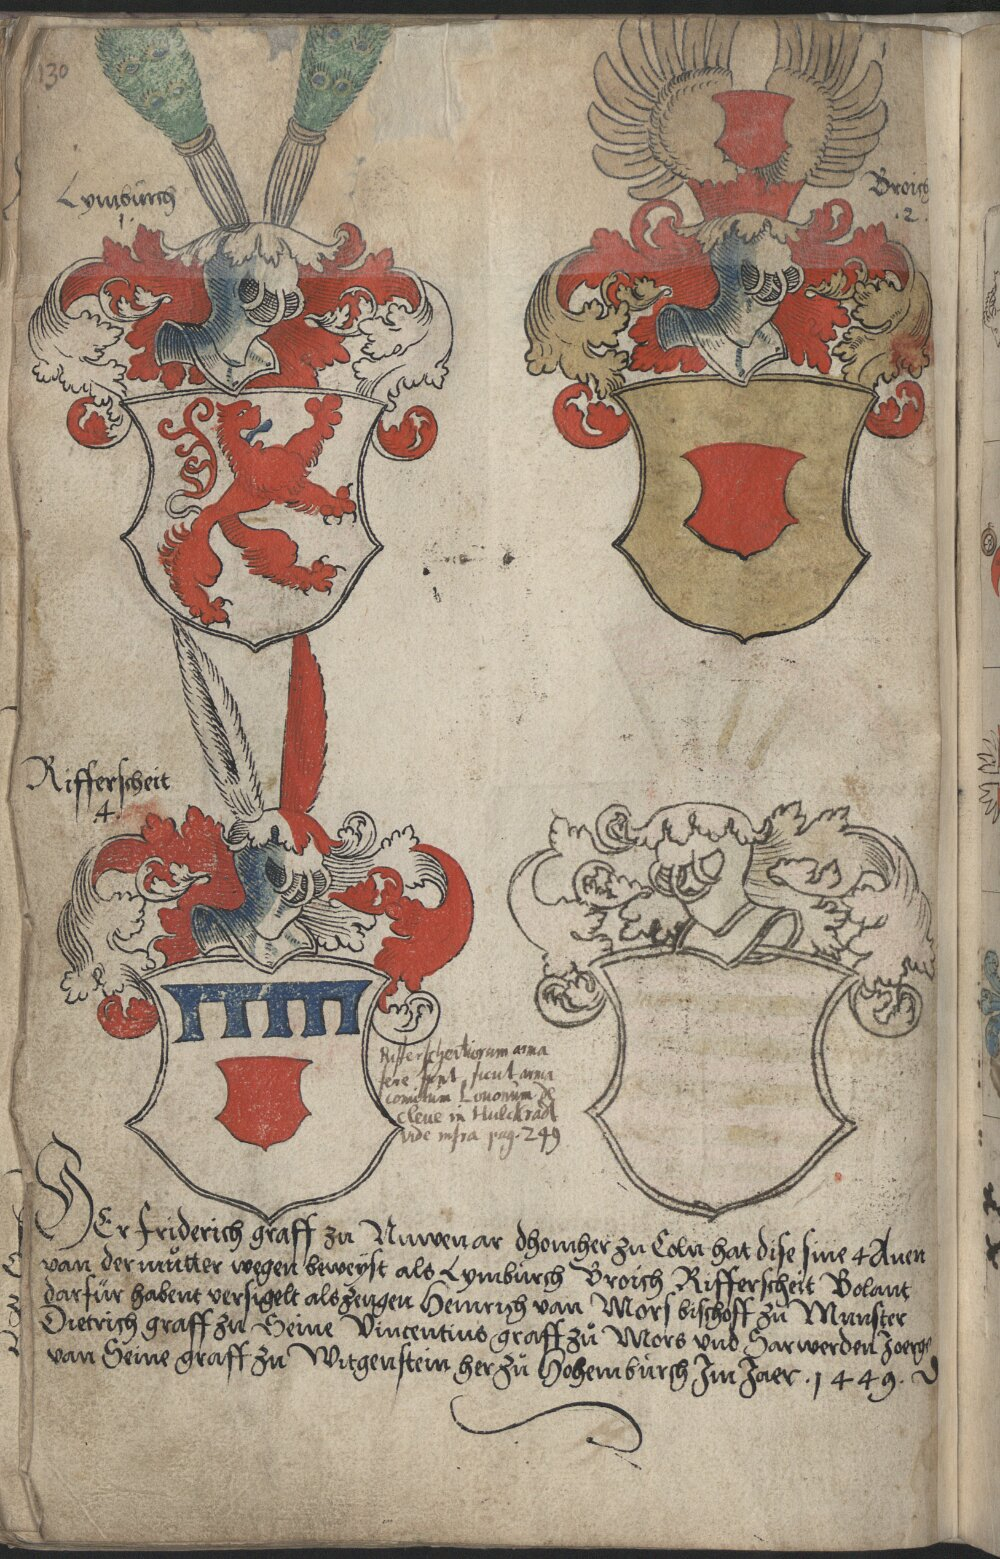 130
Lymburch
1
Broich
.2.
Rifferscheit
4.
Rifferscheitiorum arma
fere sunt sicut arma
comitum Lononum de
Cleue in Hulckrad
vide infra pag. 249
HEr friderich graff zu Nuwenar dhomher zu Coln hat dise sine 4 Anen
van der mutter wegen beweyst als Lymburch Broich Rifferscheit Bolant
darfür habent versigelt als zeugen Heinrich van Mors bischoff zu Munster
Dietrich graff zu Seine Vincentius graff zů Mors vnd Sarwerden Joerge
van Seine graff zu Witgenstein her zů Homburch Im Jaer . 1449 .